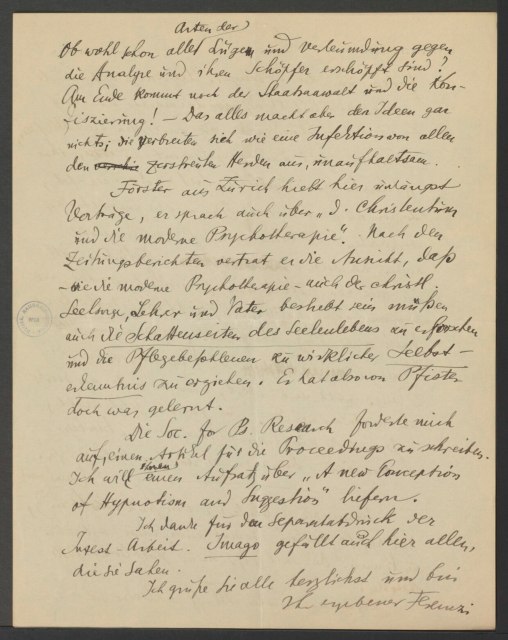 Arten der
Ob wohl schon alle Lügen und Verleumdung gegen
die Analyse und ihren Schöpfer erschöpft sind?
Am Ende kommt noch der Staatsanwalt und die Kon-
fiszierung! – Das alles macht aber den Ideen gar
nichts; die verbreiten sich wie eine Infektion von allen
den zerstreuten Herden aus, unaufhaltsam.
Förster aus Zürich hielt hier unlängst
Vorträge, er sprach auch über „d. Christentum
und die moderne Psychotherapie". Nach den
Zeitungsberichten vertrat er die Ansicht, daß
– wie die moderne Psychotherapie – auch der christl.
Seelsorger, Lehrer und Vater bestrebt sein müßen
auch die Schattenseiten des Seelenlebens zu erforschen
und die Pflegebefohlenen zu wirklicher Selbst-
erkenntnis zu erziehen. Er hat also von Pfister
doch was gelernt.
Die Soc. for Ps. Research forderte mich
auf, einen Artikel für die Proceedings zu schreiben.
Ich will einen Aufsatz über „A new Conception
of Hypnotism and Suggestion" liefern.
Ich danke für den Separatabdruck der
Inzest-Arbeit. Imago gefällt auch hier allen,
die sie sahen.
Ich grüße Sie alle herzlichst und bin
Ihr ergebener Ferenczi